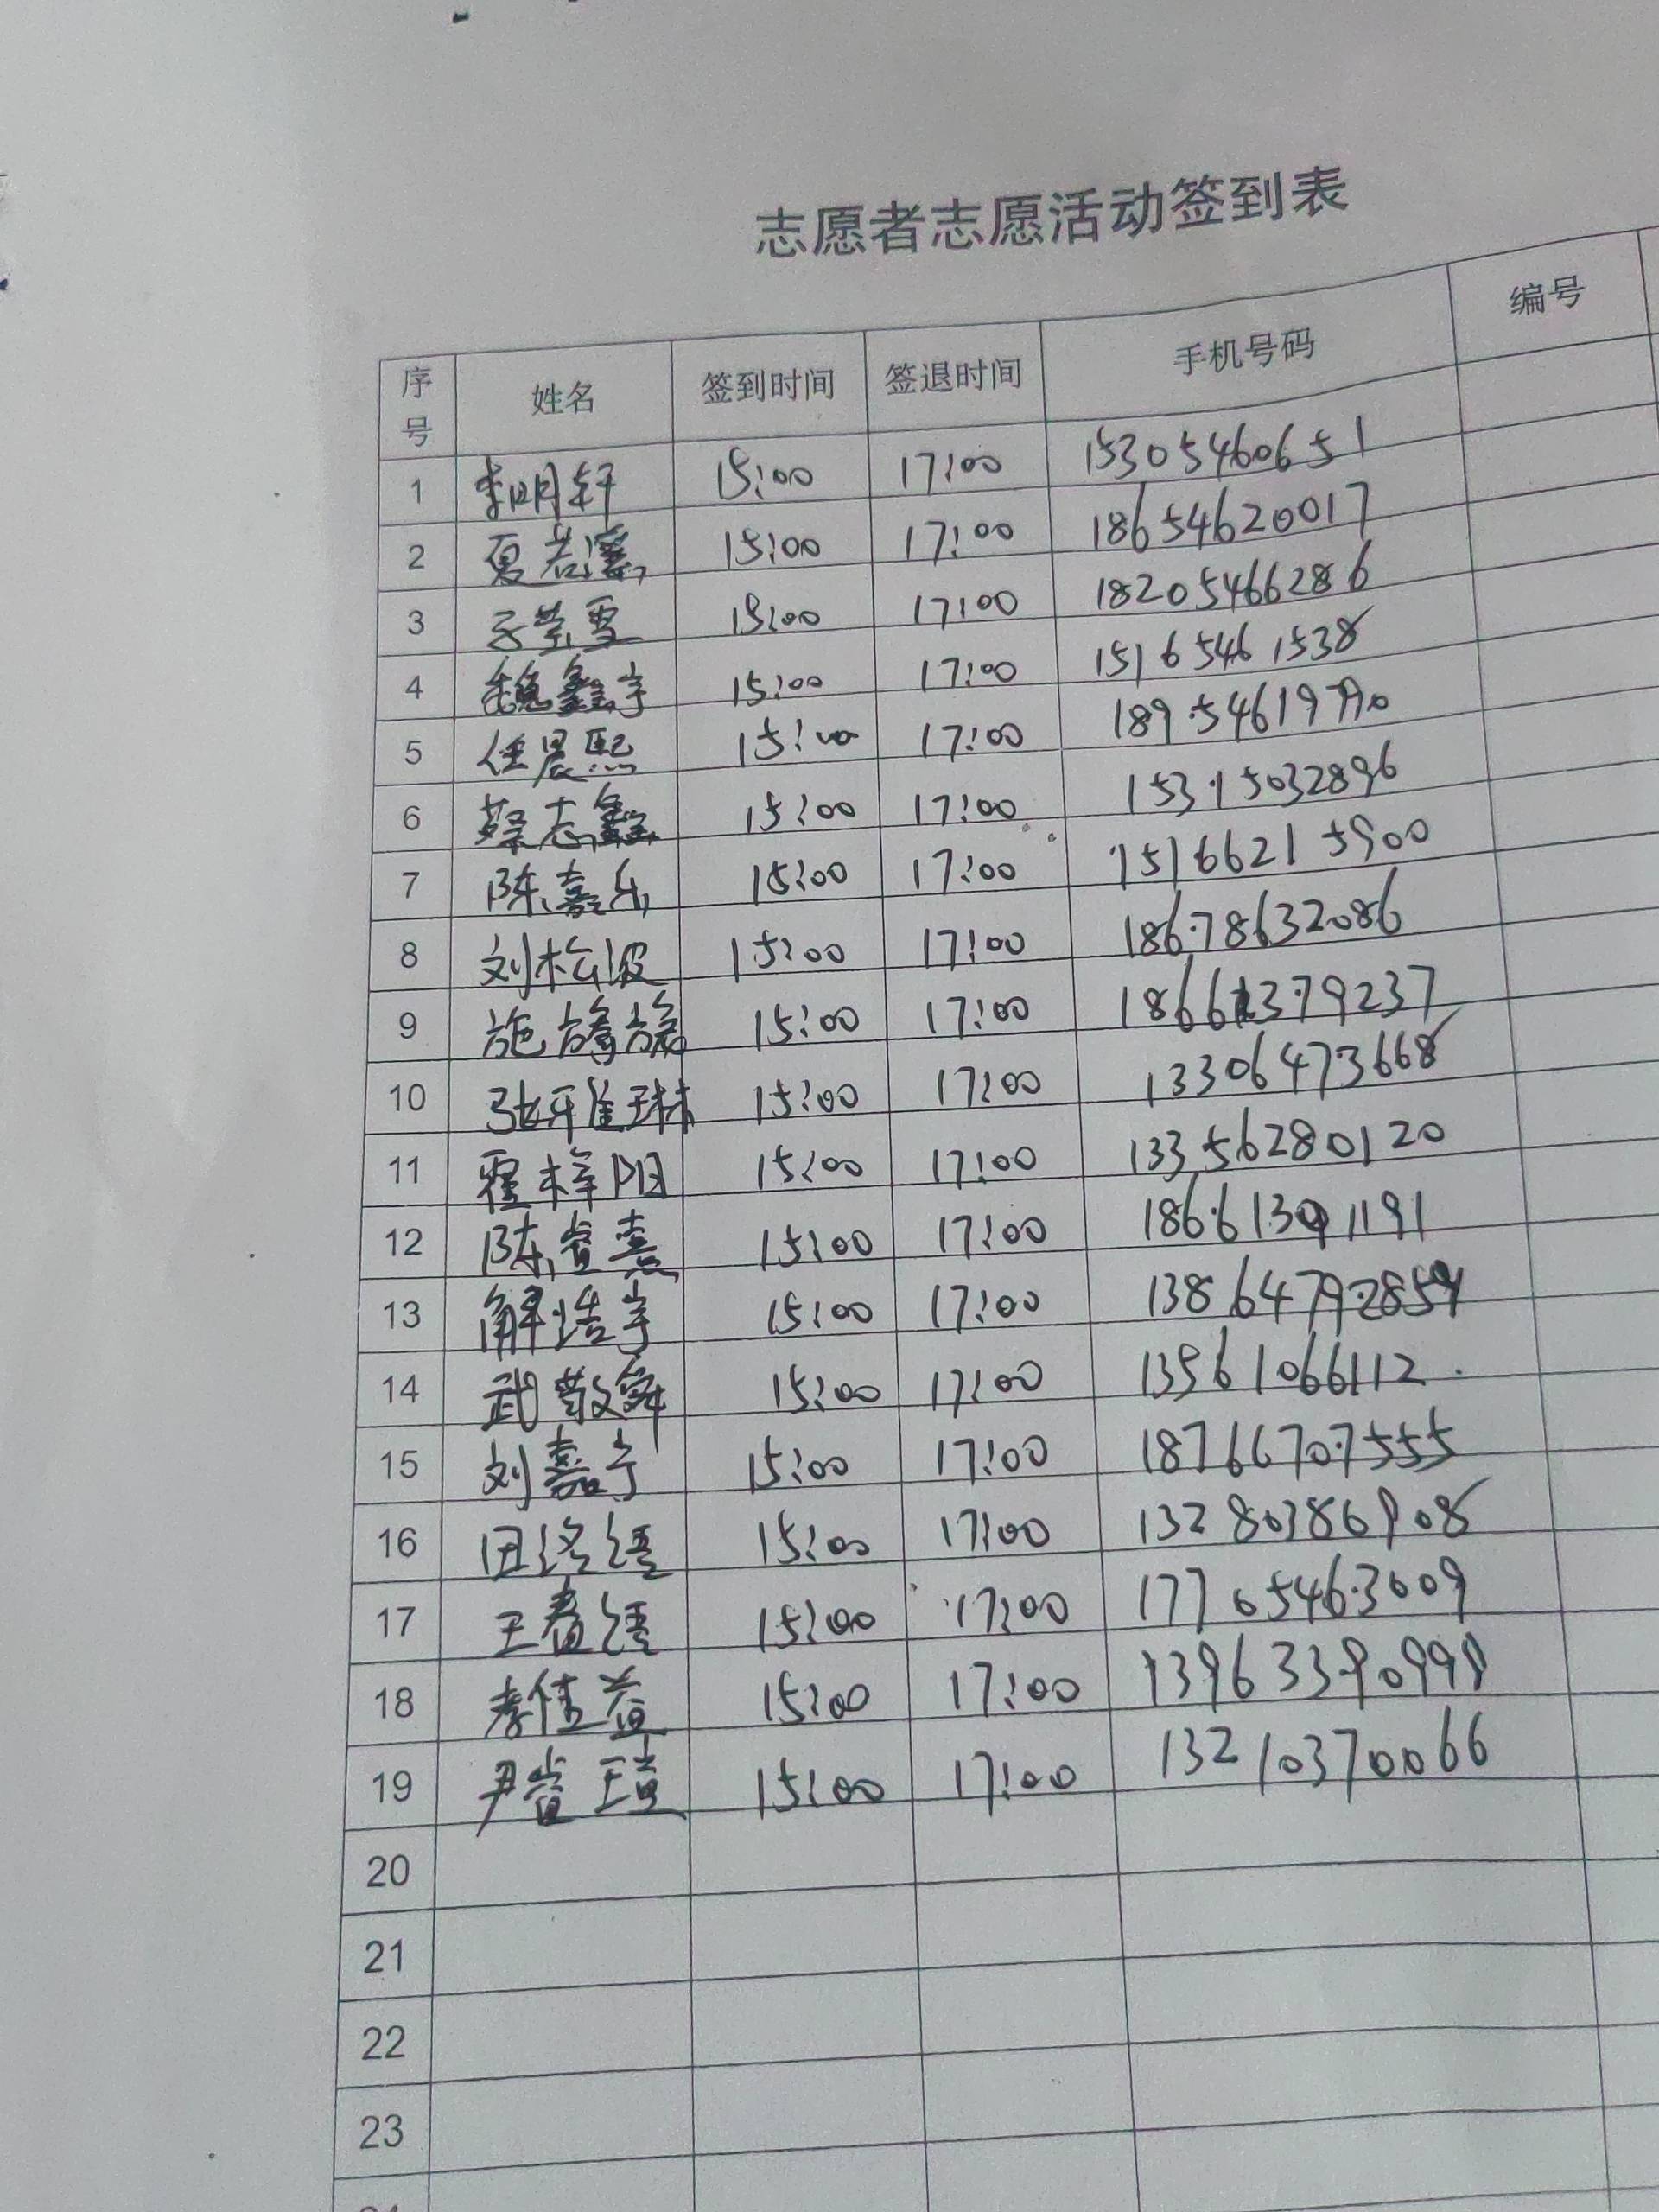 志愿者志愿活动签到表
序号 姓名 签到时间 签退时间 手机号码 编号
1 李明轩 15:00 17:00 15305460651
2 夏若溪 15:00 17:00 18654620017
3 15:00 17:00 18205466286
4 魏鑫宇 15:00 17:00 15165461538
5 任晨熙 15:00 17:00
6 蔡志鑫 15:00 17:00 15315032896
7 陈嘉乐 15:00 17:00 15166215900
8 刘松波 15:00 17:00 18678632086
9 施 15:00 17:00 18661379237
10 张雅琳 15:00 17:00 13306473668
11 霍梓阳 15:00 17:00 13356280120
12 陈睿熹 15:00 17:00 18661391191
13 解浩宇 15:00 17:00
14 武敬舜 15:00 17:00 13561066112
15 刘嘉宁 15:00 17:00 18766707555
16 田洺语 15:00 17:00 13280386908
17 王春语 15:00 17:00 17705463609
18 李佳益 15:00 17:00 13963390999
19 尹 15:00 17:00 13210370066
20
21
22
23